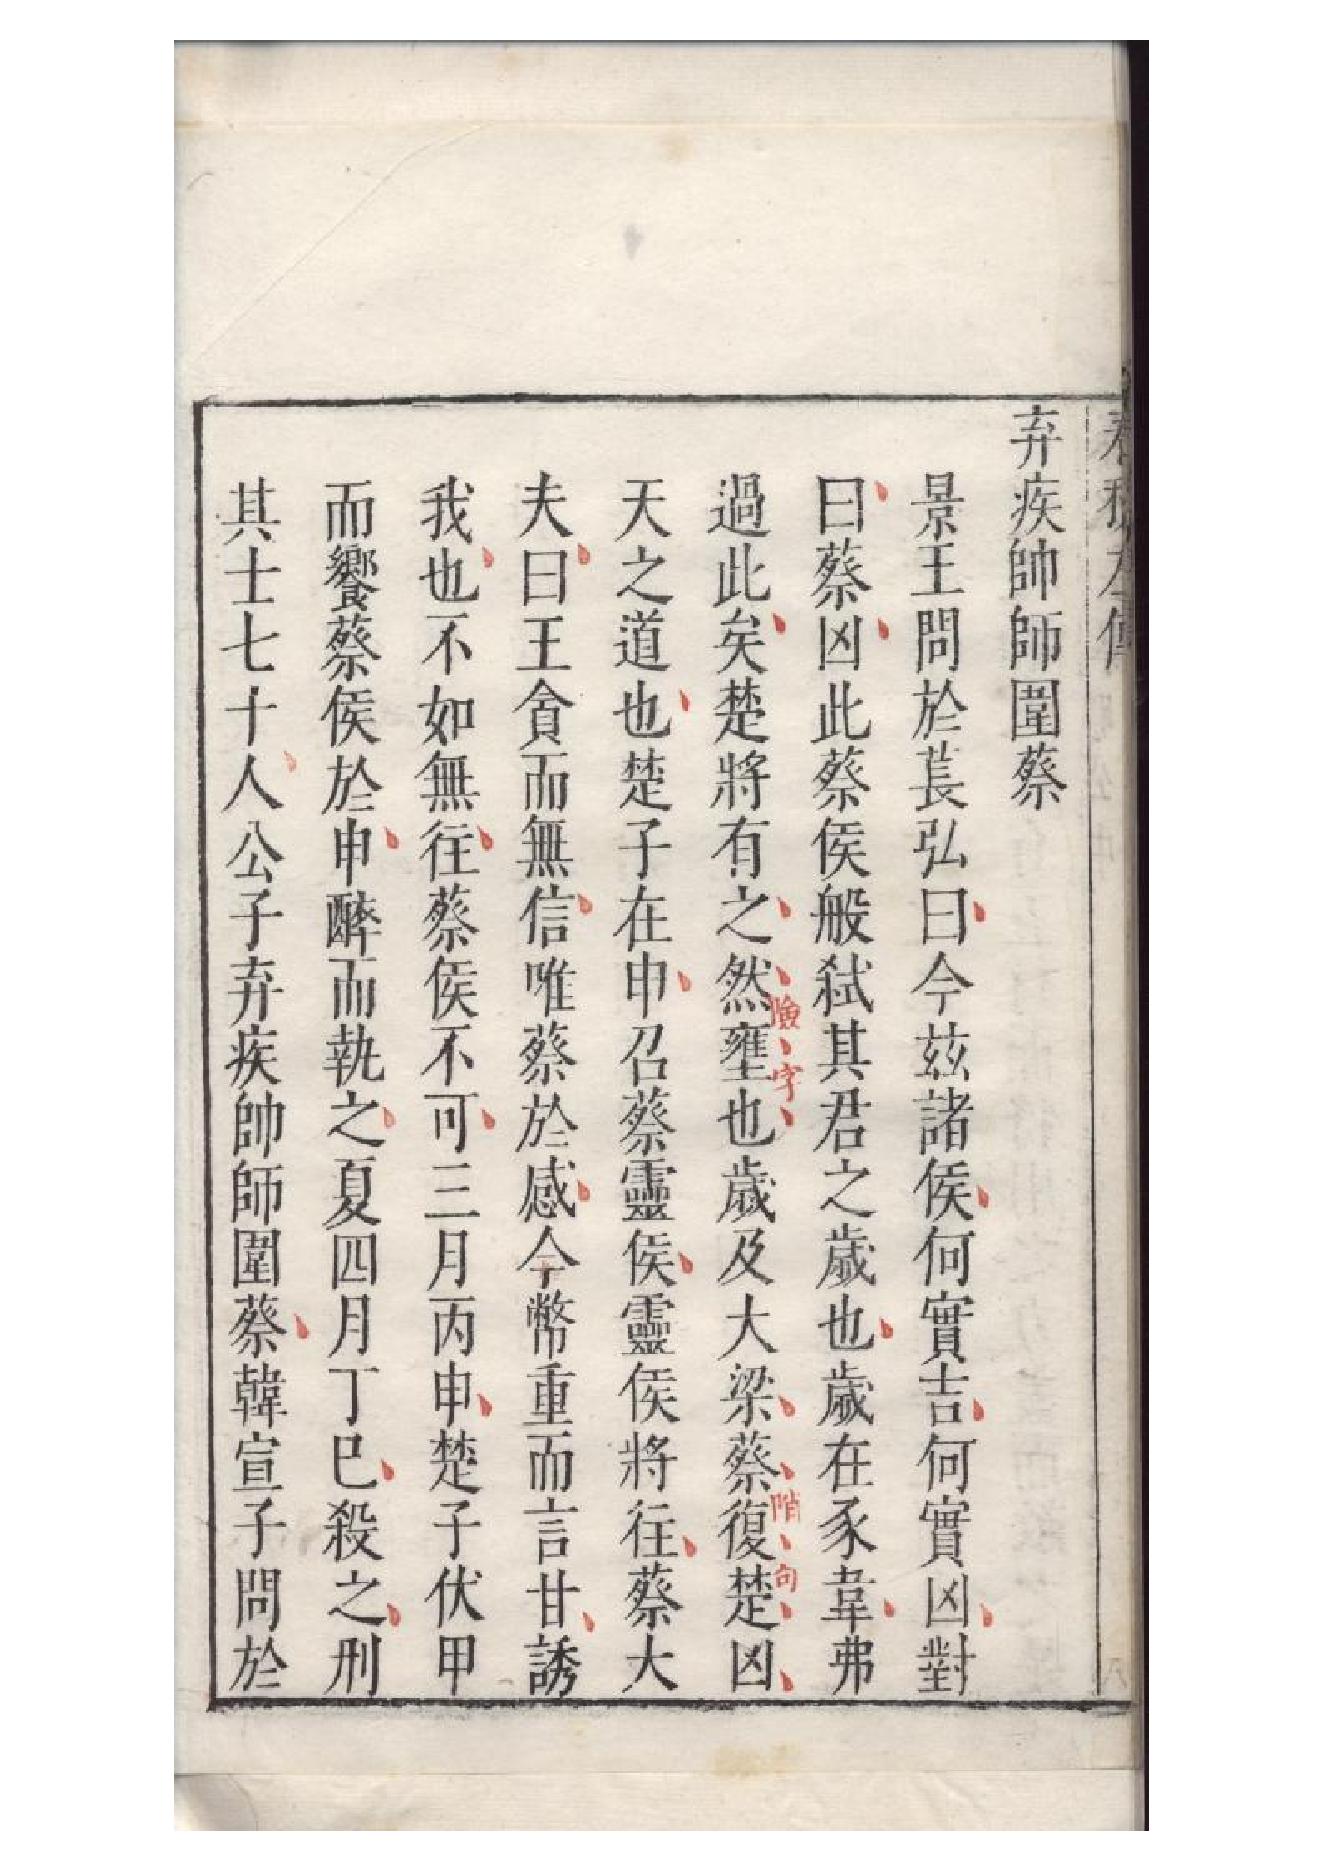 弃疾帥師圍蔡
景王問於萇弘曰今茲諸侯何實吉何實凶對
曰蔡凶此蔡侯般弑其君之歲也歲在豕韋弗
過此矣楚將有之然壅也歲及大梁蔡復楚凶
險字
哨句
天之道也楚子在申召蔡靈侯靈侯將往蔡大
夫曰王貪而無信唯蔡於感今幣重而言甘誘
我也不如無往蔡侯不可三月丙申楚子伏甲
而饗蔡侯於申醉而執之夏四月丁巳殺之刑
其士七十人公子弃疾帥師圍蔡韓宣子問於